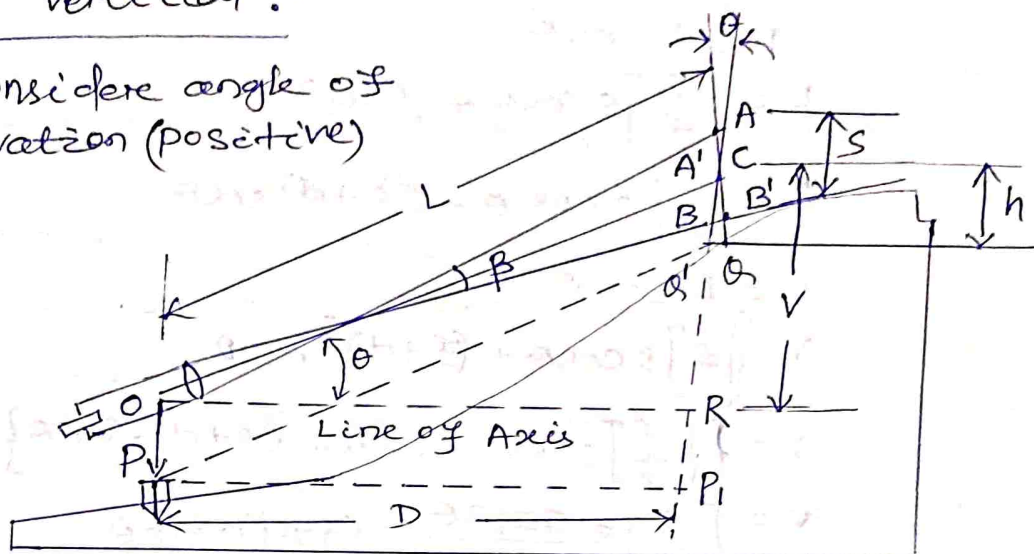 vertical :
nsidere angle of
vation (positive)
θ
A
S
L
A' C
B B'
h
β
Q' Q
V
θ
O
R
Line of Axis
P
P₁
D